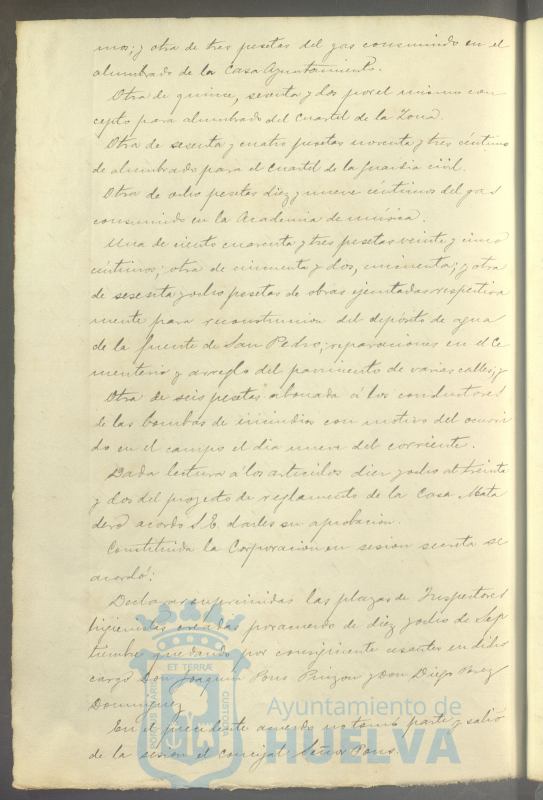 mos; y otra de tres pesetas del gas consumido en el
alumbrado de la Casa Ayuntamiento.
Otra de quince, sesenta y dos por el mismo con
cepto para alumbrado del Cuartel de la Zona.
Otra de sesenta y cuatro pesetas noventa y tres céntimos
de alumbrado para el Cuartel de la Guardia civil.
Otra de ocho pesetas diez y nueve céntimos del gas
consumido en la Academia de música.
Una de ciento cuarenta y tres pesetas veinte y cinco
céntimos; otra de cincuenta y dos, cincuenta; y otra
de sesenta y ocho pesetas de obras ejecutadas respectiva
mente para reconstruccion del depósito de agua
de la fuente de San Pedro; reparaciones en el Ce
menterio y arreglo del pavimento de varias calles; y
Otra de seis pesetas abonada á los conductores
de las bombas de incendios con motivo del ocurri
do en el campo el dia nueve del corriente.
Dada lectura á los articulos diez y ocho al treinta
y dos del proyecto de reglamento de la Casa Mata
dero acordó S.E. darles su aprobacion.
Constituida la Corporacion en sesion secreta se
acordó:
Declarar suprimidas las plazas de Inspectores
higienistas creadas por acuerdo de diez y ocho de Sep
tiembre quedando por consiguiente cesantes en dicho
cargo Don Joaquin Pons Pinzon y Don Diego Perez
Dominguez
En el precedente acuerdo no tomó parte y salió
de la sesion el concejal Señor Pons.
ET TERRÆ
CUSTODIA
PORTUS MARIS
Ayuntamiento de
HUELVA